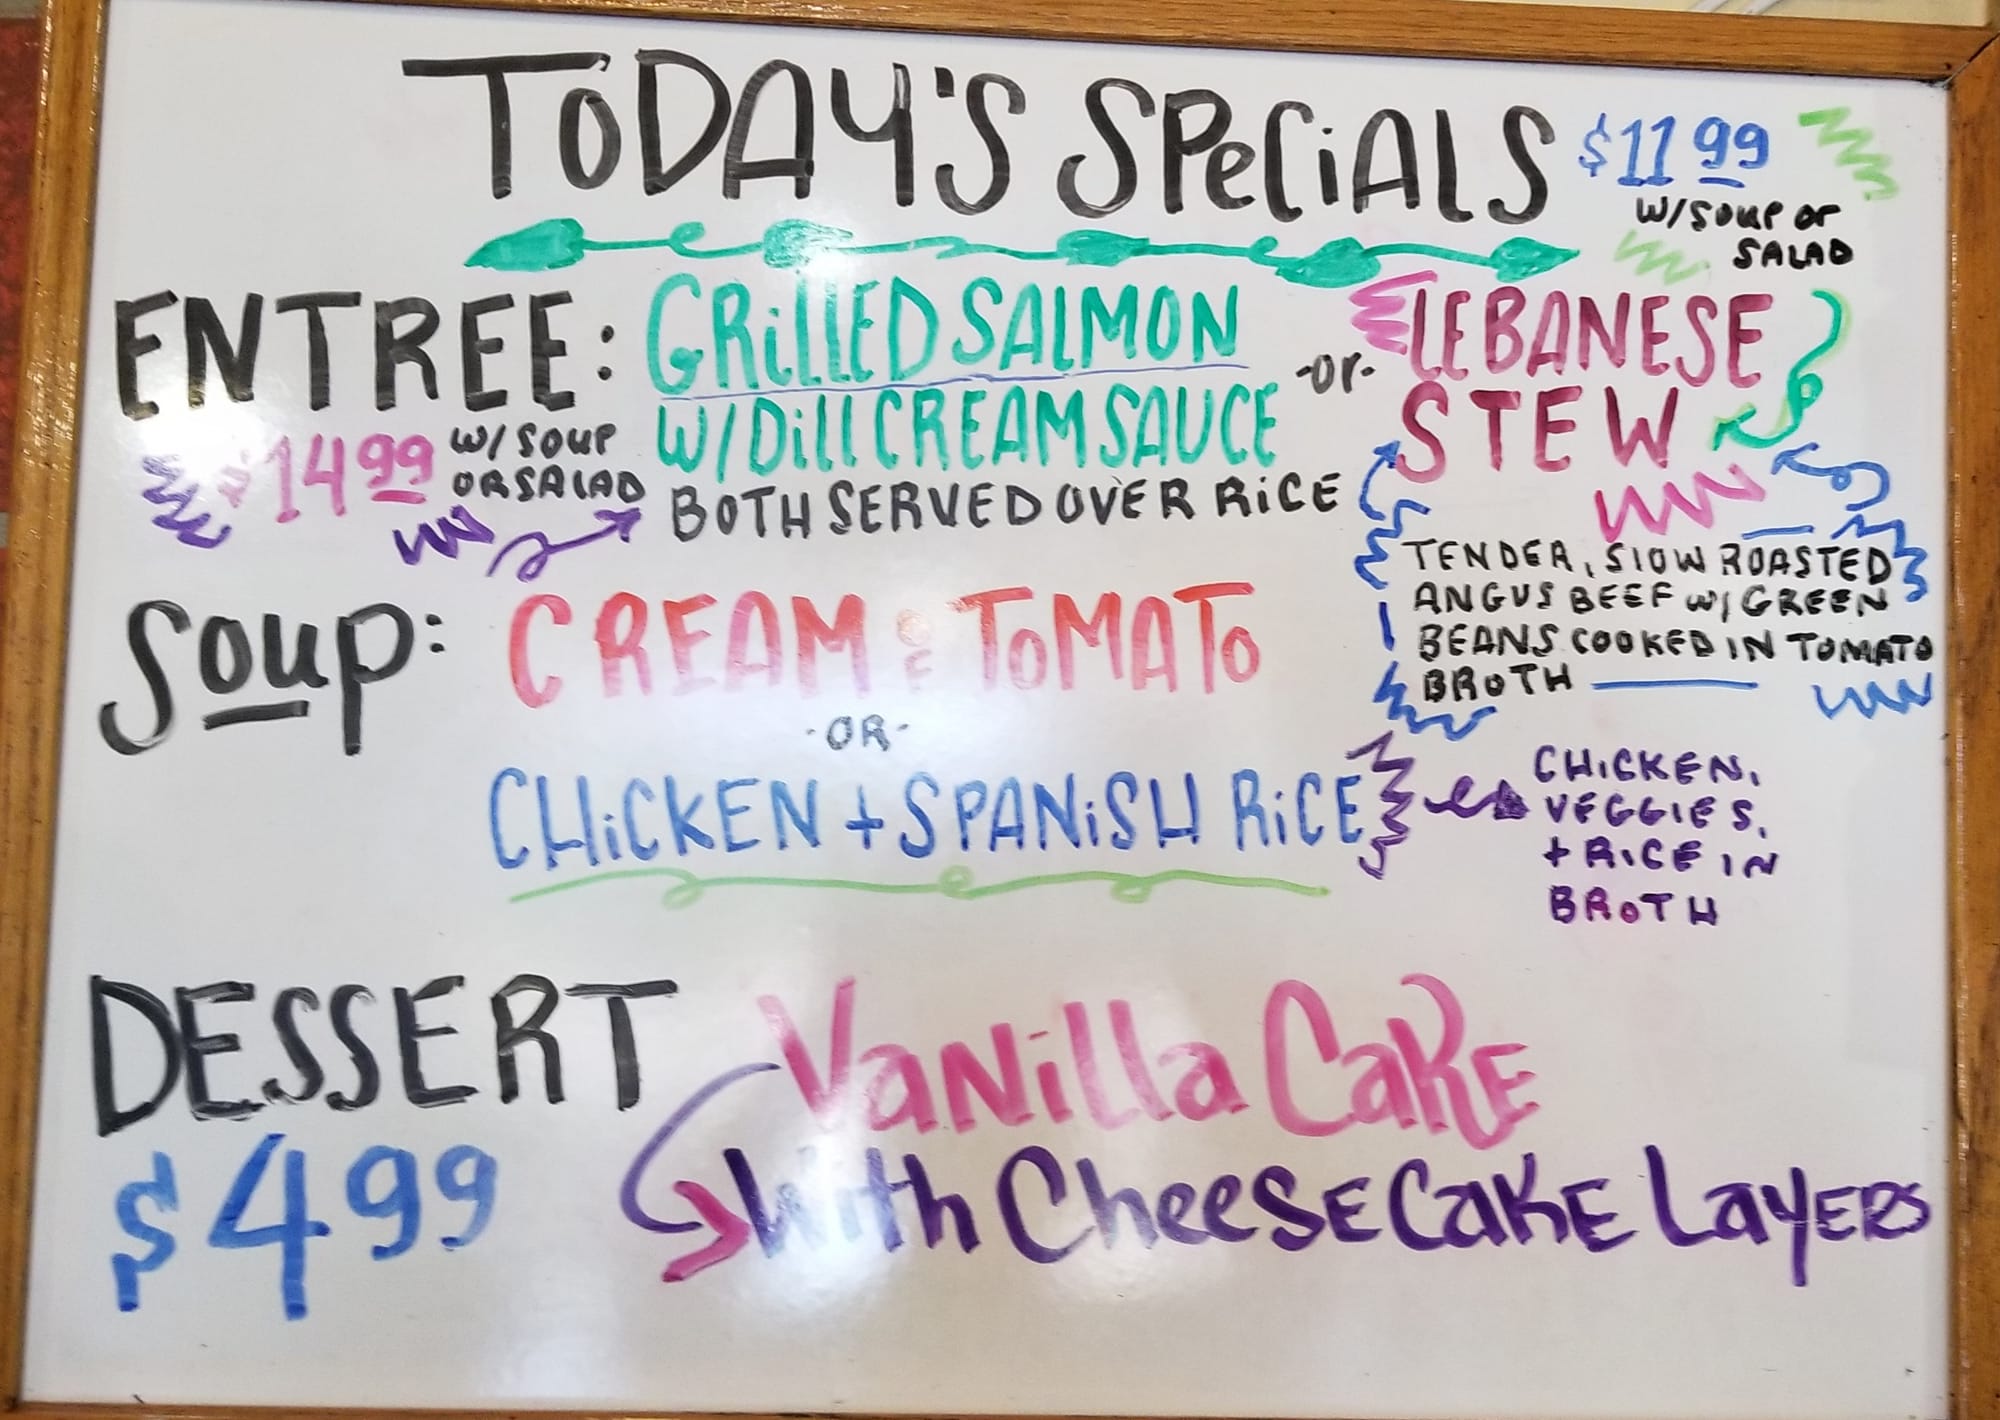 TODAY'S SPECIALS
$11 99
W/SOUP OR
SALAD
ENTREE:
$14 99
W/SOUP
OR SALAD
GRILLED SALMON
W/DILL CREAM SAUCE
-or-
LEBANESE
STEW
BOTH SERVED OVER RICE
TENDER, SLOW ROASTED
ANGUS BEEF W/ GREEN
BEANS COOKED IN TOMATO
BROTH
SOUP: CREAM OF TOMATO
-OR-
CHICKEN + SPANISH RICE
CHICKEN,
VEGGIES,
+ RICE IN
BROTH
DESSERT
$4 99
Vanilla Cake
With Cheesecake Layers